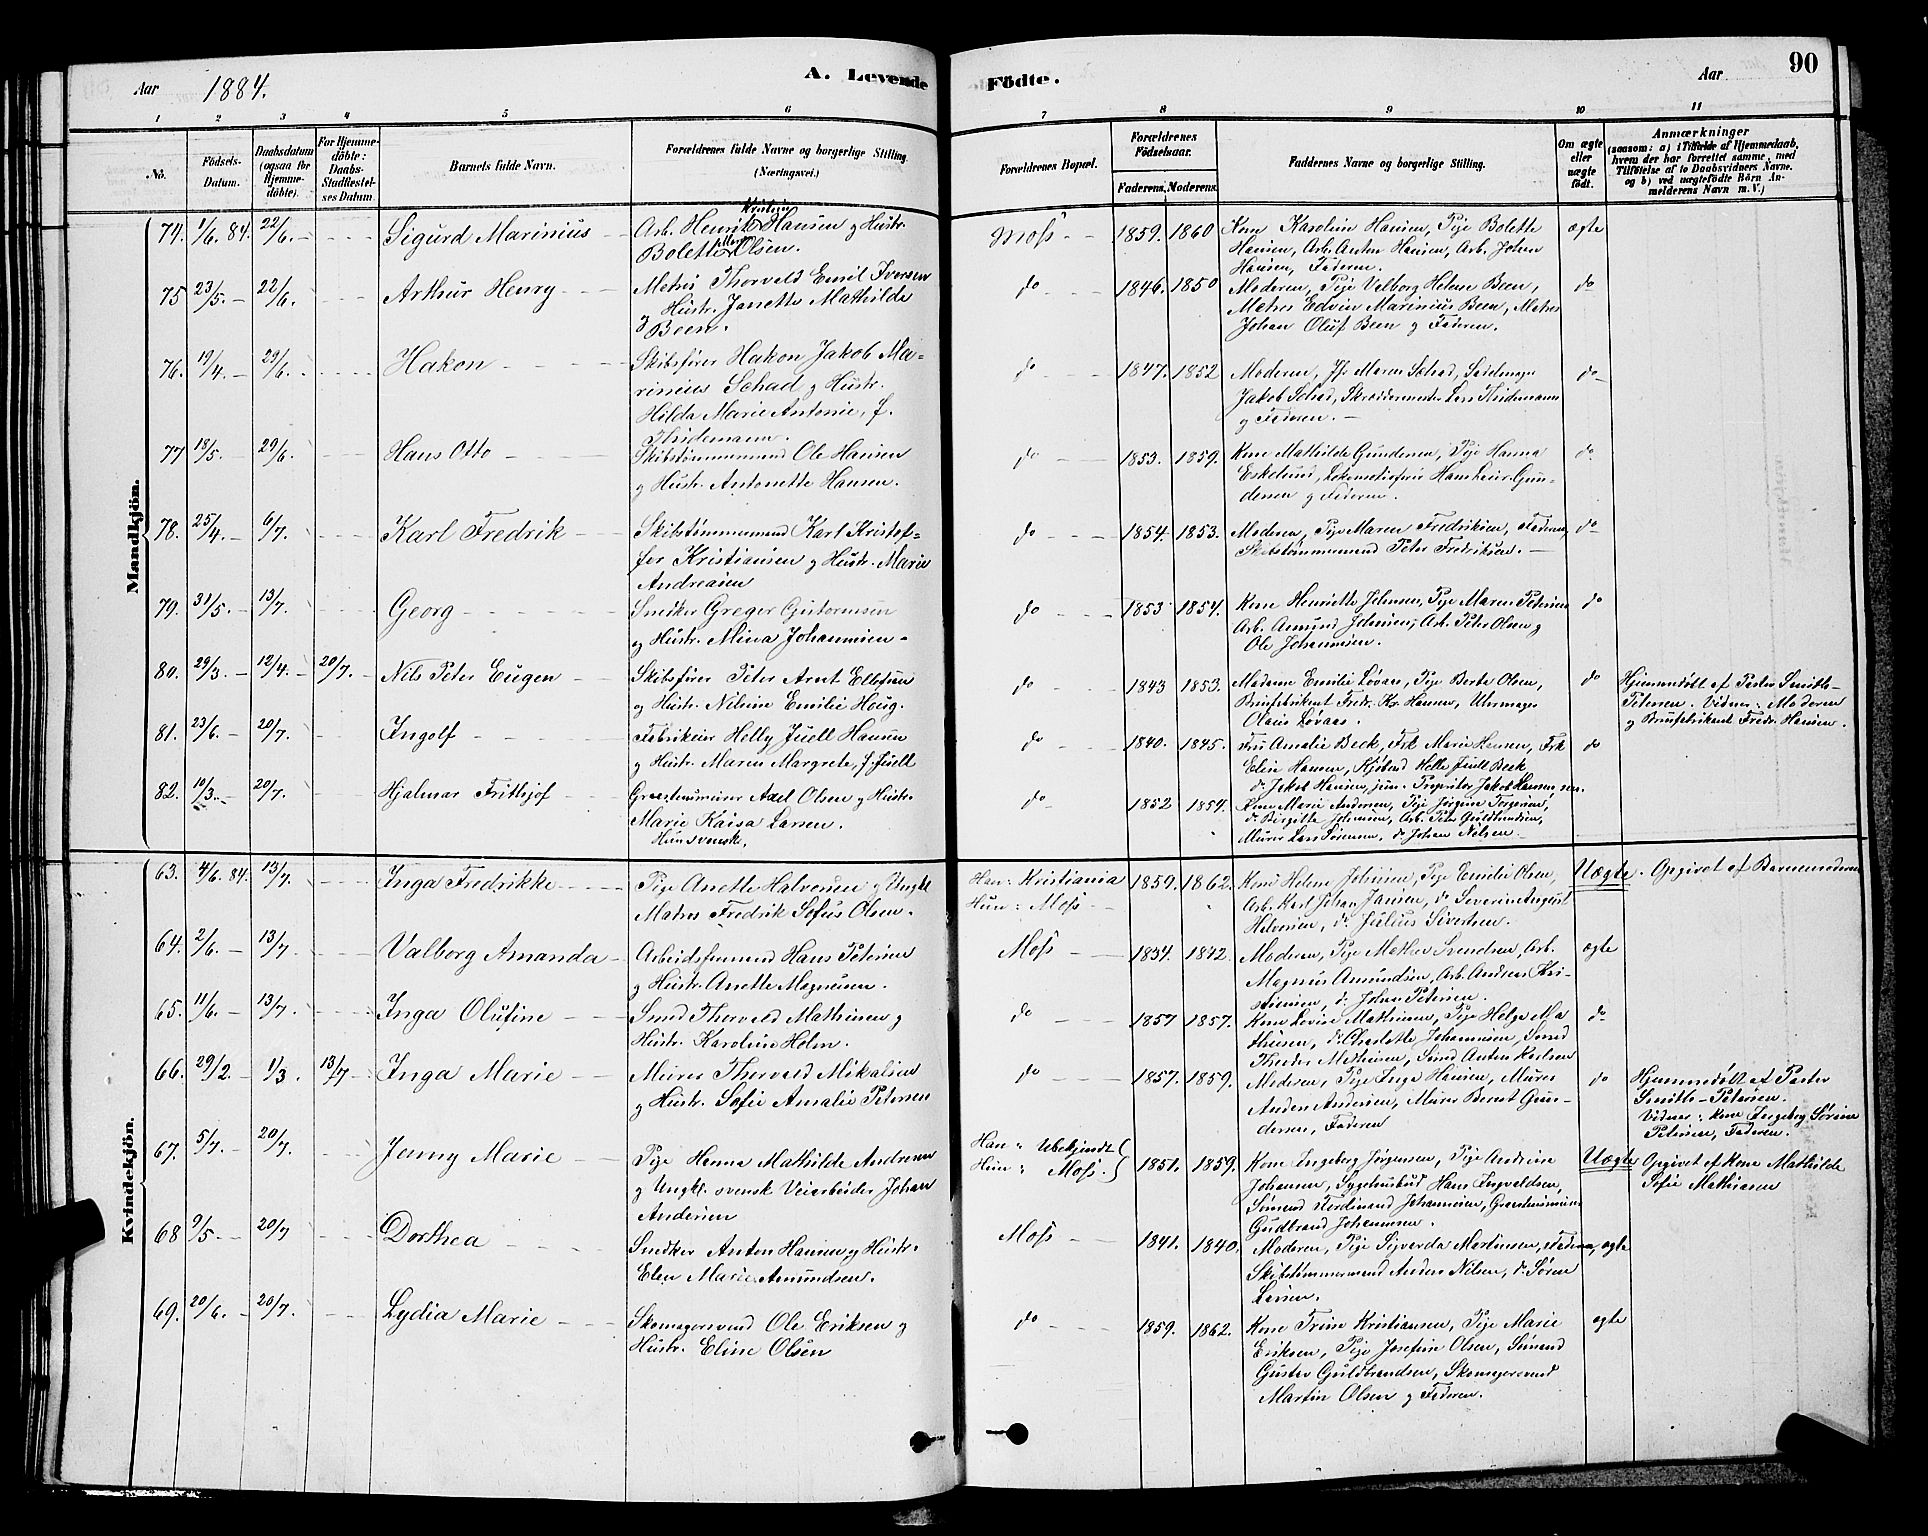 Aar 1884. A. Levende Födte. Aar 90
1 2 3 4 5 6 7 8 9 10 11
No. Födsels-Datum. Daabsdatum (ogsaa for Hjemmedöbte). For Hjemmedöbte: Daabs-Stadfæstelses Datum. Barnets fulde Navn. Forældrenes fulde Navne og borgerlige Stilling. (Næringsvei.) Forældrenes Bopæl. Forældrenes Födselsaar. Faderens. Moderens. Faddernes Navne og borgerlige Stilling. Om ægte eller uægte födt. Anmærkninger (saasom: a) i Tilfælde af Hjemmedaab, hvem der har forrettet samme, med Tilföielse af to Daabsvidners Navne, og b) ved uægtefödte Börn Anmelderens Navn m. V.)
Mandkjön.
74. 1/6. 84. 22/6. Sigurd Marinius Arb. Henrik Kristian Hansen og Hustr. Moss 1859. 1860 Kone Karoline Hansen, Pige Bolette ægte
Bolette Olsen. Hansen, Arb. Anton Hansen, Arb. Johan
Hansen, Faderen.
75 23/5. 22/6. Arthur Henry Matros Thorvald Emil Iversen do 1846. 1850 Moderen, Pige Valborg Helene Been, do
og Hustr. Janette Mathilde Matros Edvin Marinius Been, Matros
Been. Johan Oluf Been og Faderen.
76. 19/4. 29/6. Hakon Skibsfører Hakon Jakob Ma- do 1847. 1852 Moderen, Maren Schad, Sadelmager do
rinius Schad og Hustr. Jakob Schad, Skræddermester Lars Thidemann
Hilda Marie Antonie, f. og Faderen.
Thidemann.
77 18/5. 29/6. Hans Otto Skibstømmermand Ole Hansen do 1853. 1859. Kone Mathilde Gundersen, Pige Hanna do
og Hustr. Antonette Hansen. Eskelund, Lokomotivfører Hans Gun-
dersen og Faderen.
78. 25/4. 6/7. Karl Fredrik Skibstømmermand Karl Kristof- do 1854. 1853. Moderen, Pige Maren Fredriksen, Faderen, do
fer Kristiansen og Hustr. Marie Skibstømmermand Peter Fredriksen.
Andreasen
79. 31/5. 13/7. Georg Snedker Greger Gutormsen do 1853 1854. Kone Henriette Johnsen, Pige Maren Petersen do
og Hustr. Mina Johannesen. Arb. Amund Johnsen, Arb. Peter Olsen og
Ole Johannesen.
80. 29/3. 12/4. 20/7. Nils Peter Eugen Skibsfører Peter Arnt Ellefsen do 1843 1853. Madame Emilie Lovaas, Pige Berta Olsen, do Hjemmedøbt af Pastor Smith-
og Hustr. Nilsine Emilie Houg. Brusfabrikant Fredr. Kr. Hansen, Uhrmager Petersen. Vidner: Moderen
Olaus Lovaas. og Brusfabrikant Fredr. Hansen.
81. 23/6. 20/7. Ingolf Fabrikeier Helly Juell Hansen do 1840. 1845. Fru Amalie Beck, Frk Marie Hansen, Frk do
og Hustr. Maren Margrete, f. Juell Elise Hansen, Kjøbmd Helle Juell Beck
do Jakob Hansen jun. Proprietær Jakob Hansen sen.
82. 10/3. 20/7. Hjalmar Frithjof Axel Olsen og Hustr. do 1852 1854. Kone Marie Andersen, Pige Jørgine Torgersen,
Marie Kaisa Larsen. do Birgitte Johnsen, Arb. Peter Guldbrandsen,
Hun svensk. Murer Lars Sørensen, do Johan Nilsen.
Kvindekjön.
63. 4/6. 84. 13/7. Inga Fredrikke Pige Anette Halvorsen og Ungkl. Han: Kristiania 1859. 1862. Kone Helene Johnsen, Pige Emilie Olsen, Uægte. Opgivet af Barnemoderen
Matros Fredrik Sofus Olsen. Hun: Moss Arb. Karl Johan Jansen, do Severin August
Halvorsen, do Julius Sivertsen.
64. 2/6. 13/7. Valborg Amanda Arbeidsformand Hans Petersen Moss 1854. 1842. Moderen, Pige Mathea Svendsen, Arb. ægte
og Hustr. Anette Magnusen. Magnus Amundsen, Arb. Andreas Kri-
stiansen, do Johan Petersen.
65. 11/6. 13/7. Inga Olufine Smed Thorvald Mathisen og do 1857 1857. Kone Lovise Mathisen, Pige Helga Ma- do
Hustr. Karoline Holm. thisen, do Charlotte Johannesen, Smed
Theodor Mathisen, Smed Anton Karlsen
66. 29/2. 1/3. 13/7 Inga Marie Murer Thorvald Mikalsen do 1857. 1859. Moderen, Pige Inga Hansen, Murer do Hjemmedøbt af Pastor
og Hustr. Sofie Amalie Petersen Anders Andersen, Murer Bernt Gun- Smith-Petersen.
dersen, Faderen Vidner: Kone Ingeborg Sørine
Petersen, Faderen.
67. 5/7. 20/7. Jenny Marie Pige Hanna Mathilde Andersen Han: Ubekjendt 1851. 1859. Kone Ingeborg Jørgensen, Pige Andrine Uægte Opgivet af Kone Mathilde
og Ungkl. svensk Veiarbeider Johan Hun: Moss. Johansen, Sygehusbud Hans Ingvaldsen, Sofie Mathiasen
Andersen Sømand Ferdinand Johannesen,
Gudbrand Johannesen.
68 9/5. 20/7 Dorthea Snedker Anton Hansen og Hustr. Moss 1841. 1840. Moderen, Pige Sigvarda Martinsen, Faderen, ægte
Elen Marie Amundsen. Skibstømmermand Anders Nilsen, do Søren
Larsen.
69. 20/6. 20/7. Lydia Marie Skomagersvend Ole Eriksen og do 1859. 1862. Kone Trine Kristiansen, Pige Marie ægte
Hustr. Eline Olsen Eriksen, Pige Josefine Olsen, Sømand
Gustav Guldbrandsen, Skomagersvend
Martin Olsen og Faderen.